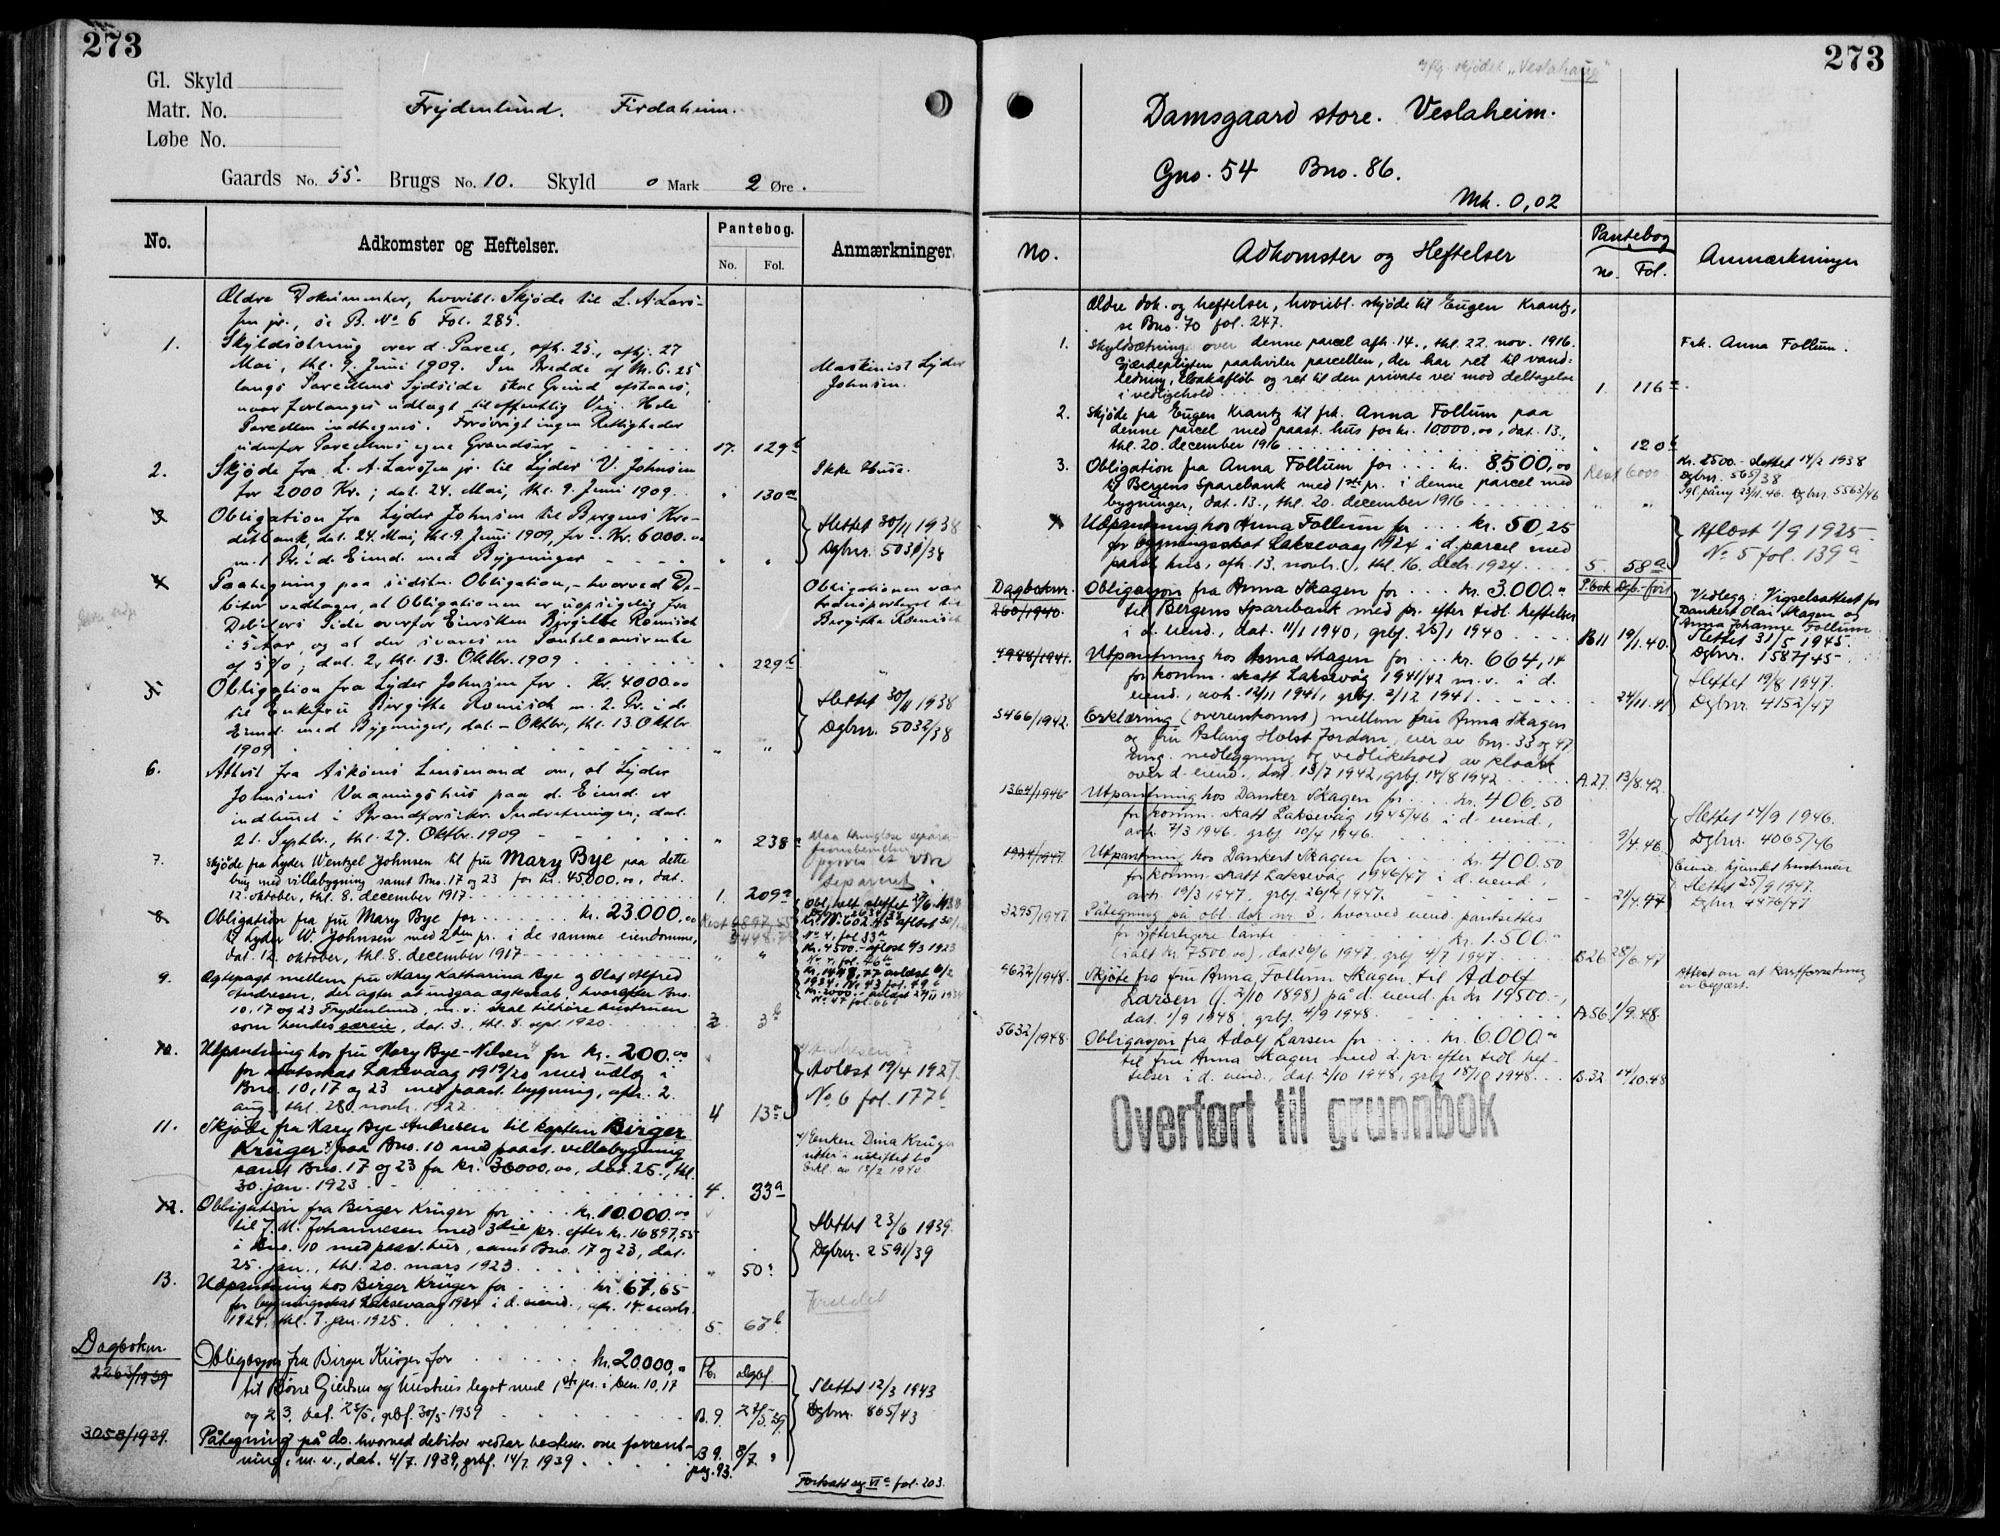 273
Gl. Skyld
Matr. No.
Løbe No.
Frydenlund. Firdaheim.
Gaards No. 55. Brugs No. 10. Skyld 0 Mark 2 Øre.
No. Adkomster og Heftelser. Pantebog. No. Fol. Anmærkninger.
Ældre Dokumenter, hvoribl. Skjøde til L. A. Lars-
sen jr., se B. No 6 Fol. 285.
1. Skyldsætning over d. Parcel, afh. 25., afhj. 27
Mai, thl. 9. Juni 1909. En Bredde af M. 6.25
langs Parcellens Sydside skal Grund afstaaes,
naar forlanges udlagt til offentlig Vei. Hele
Parcellen indhegnes. Forøvrigt ingen Rettigheder
udenfor Parcellens egne Grændser 17. 129b
Maskinist Lyder
Johnsen.
2. Skjøde fra L. A. Larssen jr. til Lyder V. Johnsen
for 2000 Kr.; dat. 24. Mai, thl. 9. Juni 1909. " 130a
Ikke Huse.
3. Obligation fra Lyder Johnsen til Bergens Kre-
ditbank, dat. 24. Mai, thl. 9. Juni 1909, for Kr. 6000.00
m. 1. Pr. i d. Eiend. med Bygninger " "
Slettet 30/11 1938
Dgbnr. 5031/38
4. Paategning paa sidstn. Obligation, hvorved De-
bitor vedtager, at Obligationen er uopsigelig fra
Debitors Side overfor Enkefru Birgitte Romisch
i 5 Aar, og at der svares en Panteaarsrente
af 5%; dat. 2., thl. 13. Oktbr. 1909 " 229b
Obligationen var
transporteret til
Birgitte Romisch
5. Obligation fra Lyder Johnsen for Kr. 4000.00
til Enkefru Birgitte Romisch m. 2. Pr. i d.
Eiend. med Bygninger, dat. - Oktbr., thl. 13 Oktbr.
1909 " "
Slettet 30/11 1938
Dgbnr. 5032/38
6. Attest fra Askøens Lensmand om, at Lyder
Johnsens Vaaningshus paa d. Eiend. er
indtaget i Brandforsikr. Indretningen; dat.
21. Septbr., thl. 27. Oktbr. 1909 " 238a
7. Skjøde fra Lyder Wentzel Johnsen til fru Mary Bye paa dette
brug med villabygning samt Bno. 17 og 23 for kr. 45000,00, dat.
12. oktober, thl. 8. december 1917 1. 209a
separeret.
8. Obligation fra fru Mary Bye for kr. 23.000,00
til Lyder W. Johnsen med 2den pr. i de samme eiendomme,
dat. 12. oktober, thl. 8. december 1917 " "
No 4. fol 33a
Kr. 4500.- aflæst 4/3 1923
9. Ægtepagt mellem fru Mary Katharina Bye og Olaf Alfred
Andresen, der agter at indgaa ægteskab, hvorefter Bno.
10, 17 og 23 Frydenlund, m.v. skal tilhøre hustruen
som hendes særeie, dat. 3., thl. 8. sept. 1920 2. 3b
10. Utpantning hos fru Mary Bye-Nilsen for kr. 200.00
for Laksevaag 1919/20 med utlæg i
Bno. 10, 17 og 23 med paast. bygning, afh. 2.
aug., thl. 28. novbr. 1922 4 13a
Andresen?
Avlæst 19/4 1927.
No. 6 fol. 177b
11. Skjøde fra Mary Bye Andresen til kaptein Birger
Krüger paa Bno. 10 med paast. villabygning
samt Bno. 17 og 23 for kr. 36000,00, dat. 25., thl.
30. jan. 1923 4. 33a
Enken Dina Krüger
sitter i uskiftet bo
Erkl. av 13/2 1940
12. Obligation fra Birger Krüger for kr. 10.000.00
til J. M. Johannesen med 3die pr. efter kr. 16897,55
i Bno. 10 med paast. hus, samt Bno. 17 og 23, dat.
25. jan., thl. 20. mars 1923 " 50a
Slettet 23/6 1939.
Dgbnr. 2591/39
13. Utpantning hos Birger Krüger for kr. 67,65
for bygningsskat Laksevaag 1924 i d. eiend., afh. 14. novbr.
1924, thl. 7. jan. 1925 5. 67b
Foreldet
Dagboknr.
2263/1939 Obligasjon fra Birger Krüger for kr. 20.000,"
til Børre Giertsen og hustrus legat med 1ste pr. i bnr. 10, 17
og 23, dat. 25/5, grbf. 30/5-1939 B. 9.
Pb. Dgbf.
Slettet 12/3 1943
Dgbnr. 865/43
3058/1939. Påtegning på do. hvorved debitor vedtar bestem. om forrent-
ning, m.v., dat. 4/7. 1939, grbf. 14/7. 1939 B 9. 8/7. "
pag. 93.
Fortsatt reg VI a fol. 203.
273
Iflg. skjødet "Veslahaug"
Damsgaard store. Veslaheim.
Gno. 54 Bno. 86.
Mk. 0,02
No. Adkomster og Heftelser Pantebog no. Fol. Anmærkninger
Ældre dok. og heftelser, hvoribl. skjøde til Eugen Krantz,
se Bno. 70 fol. 247.
1. Skyldsætning over denne parcel afh. 14., thl. 22. nov. 1916.
Gjærdepligten paahviler parcellen, der har ret til vand-
ledning, kloakafløb og ret til den private vei mod deltagelse
i vedligehold 1. 116a
Frk. Anna Follum.
2. Skjøde fra Eugen Krantz til frk. Anna Follum paa
denne parcel med paast. hus for kr. 10.000,00, dat. 13.,
thl. 20. december 1916 " 120b
3. Obligation fra Anna Follum for kr. 8500,00
til Bergens Sparebank med 1ste pr. i denne parcel med
bygninger, dat. 13., thl. 20. december 1916 " "
Rest 6000
Kr. 2500.- slettet 14/2 1938
Dgbnr. 565/38
Dgbnr 5563/46
4. Utpantning hos Anna Follum for kr. 50,25
for bygningsskat Laksevaag 1924 i d. parcel med
paast. hus, afh. 13. novbr., thl. 16. decbr. 1924 5. 58a
Aflæst 1/9 1925
No. 5 fol. 139a
Dagboknr. P.bok Dgb.-ført
260/1940. Obligasjon fra Anna Skagen for kr. 3.000."
til Bergens Sparebank med pr. efter tidl. heftelser
i d. eiend., dat. 11/1 1940, grbf. 25/1 1940 B 11 19/1.40.
Vedlegg: Vigselsattest for
Dankert Olai Skagen og
Anna Johanne Follum
Slettet 31/5 1945.
Dgbnr. 1587/45
4988/1941. Utpantning hos Anna Skagen for kr. 664,14
for komm. skatt Laksevåg 1941/42 m.v. i d.
eiend., avh. 12/11 1941, grbf. 2/12 1941 24/11.41
Slettet 19/8 1947.
Dgbnr 4152/47
3466/1942. Erklæring (overenskomst) mellem fru Anna Skagen
og fru Aslaug Holst Jordan, eier av bnr. 33 og 47
ang. nedleggning og vedlikehold av kloakk
over d. eiend., dat. 13/7 1942, grbf. 14/8 1942 A. 27. 13/8.42.
1364/1946 Utpantning hos Danker Skagen for kr. 406.50
for komm. skatt Laksevåg 1945/46 i d. eiend.,
avh. 7/3 1946. grbf. 10/4 1946. 9/4.46.
Slettet 14/9 1946.
Dgbnr. 4065/46
1934/1947. Utpantning hos Dankert Skagen for kr. 400.50
for komm. skatt Laksevåg 1946/47 i d. eiend.,
avh. 19/3 1947, grbf. 26/4 1947. 21/4.47
Slettet 25/9 1947.
Dgbnr 4476/47
3295/1947. Påtegning på obl. dok nr 3, hvorved eiend. pantsettes
for ytterligere lånte kr. 1.500."
(ialt kr. 7500.00), dat 26/6 1947, grbf 4/7 1947 B.26. 28/6.47
4622/1948. Skjøte fra fru Anna Follum Skagen til Adolf
Larsen (f. 2/10 1898) på d. eiend. for kr 19500.-,
dat. 1/9 1948 grbf. 4/9 1948. A. 56. 1/9.48.
Attest om at kartforretning
er begjært.
5632/1948. Obligasjon fra Adolf Larsen for kr. 6.000."
til fru Anna Skagen med 2. pr. efter tidl. hef-
telser i d. eiend., dat. 2/10 1948, grbf 18/10 1948 B.32. 14/10.48
Overført til grunnbok